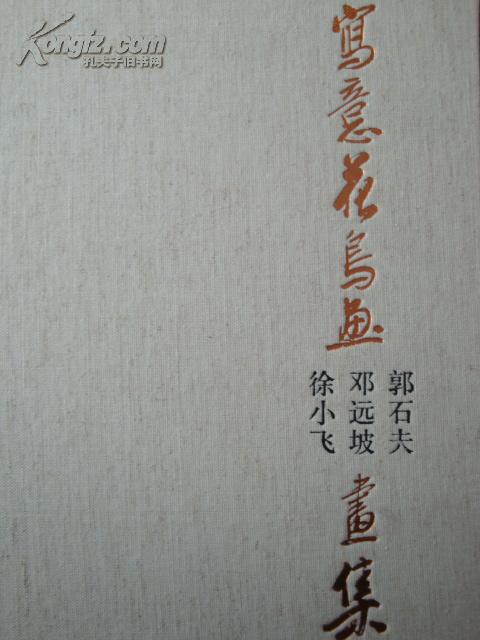 Kongfz.com
孔夫子旧书网
寫意花鸟画
郭石夫
邓远坡
徐小飞
畫集